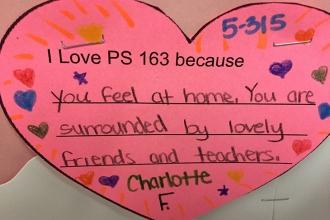 5-315
I Love PS 163 because
you feel at home. You are
surrounded by lovely
friends and teachers.
Charlotte
F.